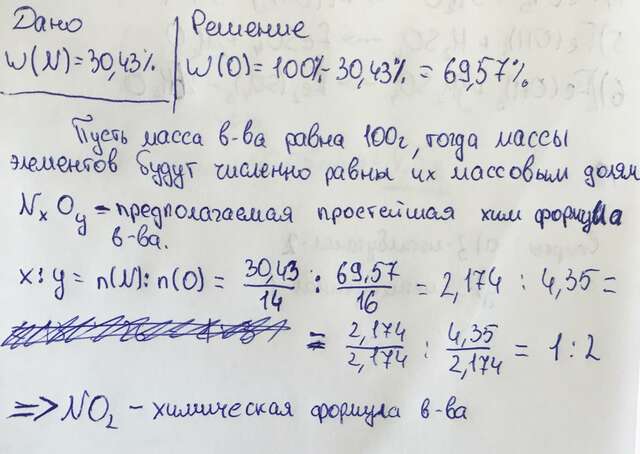 Дано
W(N)=30,43%
Решение
W(O)=100%-30,43%=69,57%
Пусть масса в-ва равна 100г, тогда массы
элементов будут численно равны их массовым долям
NxOy - предполагаемая простейшая хим формула
в-ва.
x:y = n(N):n(O) = 30,43/14 : 69,57/16 = 2,174 : 4,35 =
= 2,174/2,174 : 4,35/2,174 = 1:2
=> NO2 - химическая формула в-ва